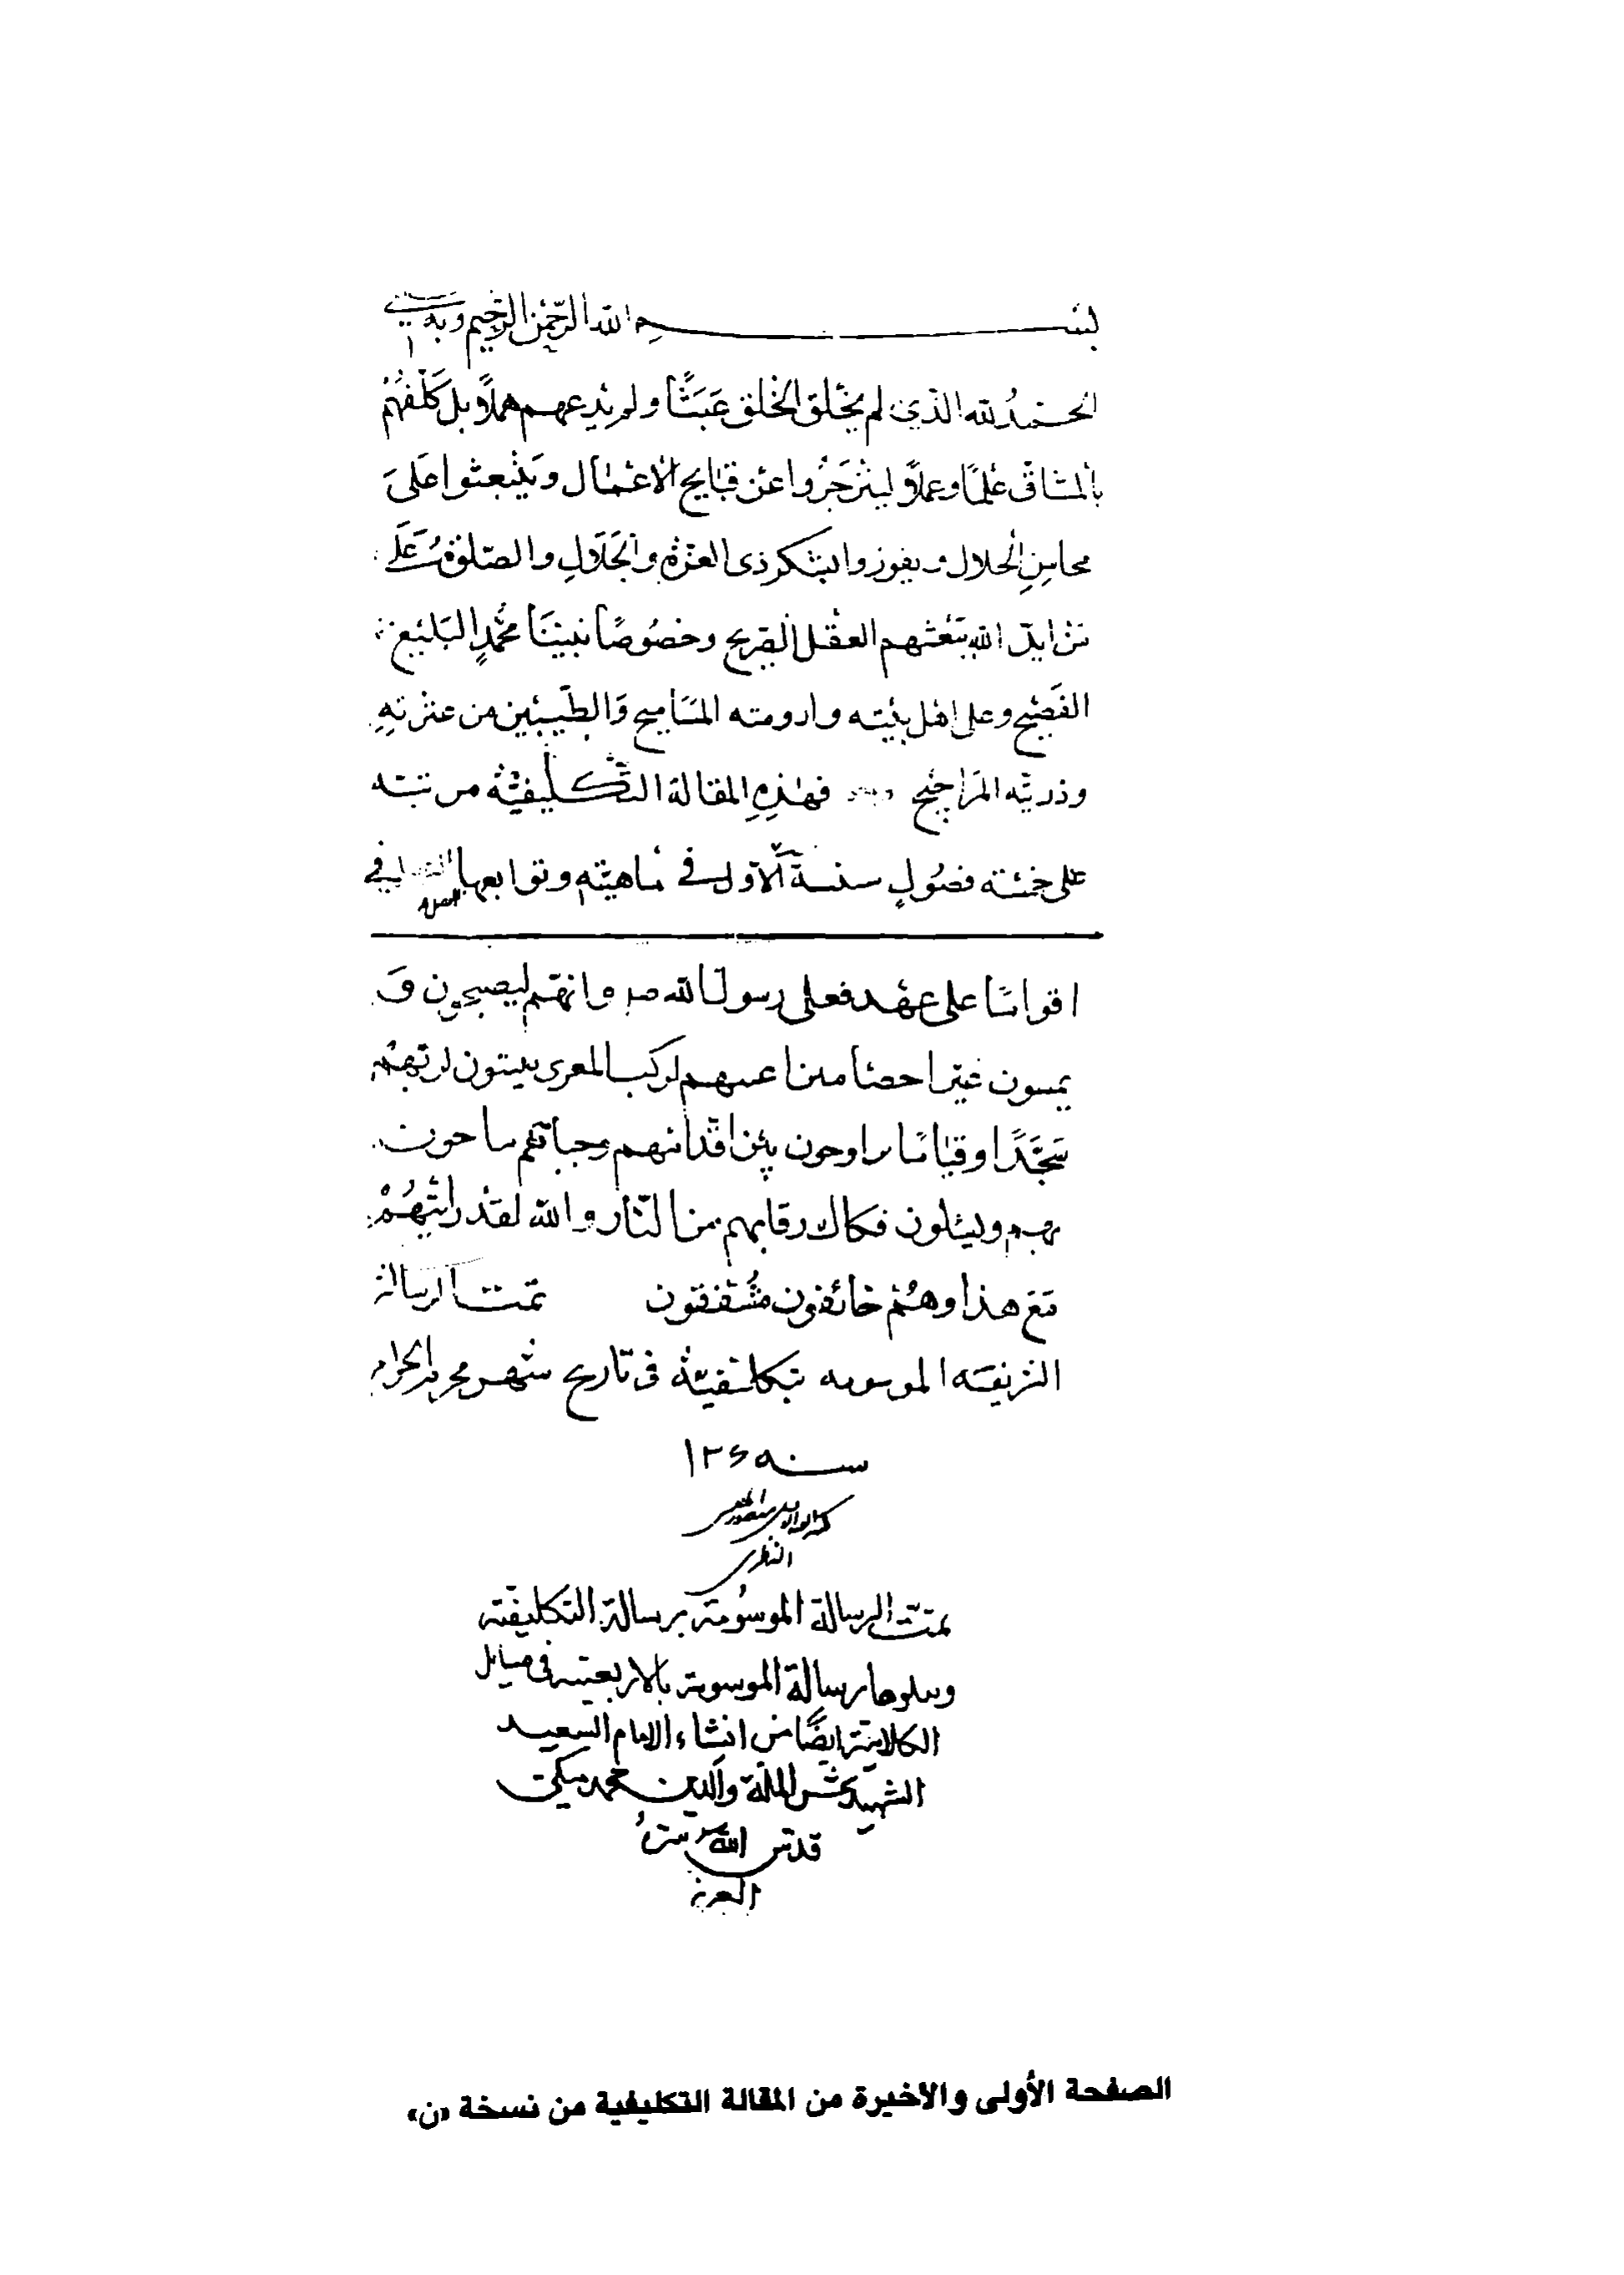 بسم الله الرحمن الرحيم وبه
الحمدُ لله الذي لم يخلق الخلق عَبَثًا ولم يدعهم هملًا بل كلّفهُم
بالمشاقّ علمًا وعملًا لينزجَرُوا عن قبايح الأعمال وينبعثوا عَلىَ
محاسِنِ الحلال ويفوزوا بشكر ذى العزة والجَلالِ والصّلوة عَلى
من ايدّ الله ببعثهم العقل الصّريح وخصُوصًا نبينَا محمّدٍ البَليغ
الفَصيح وعلى اهل بيته وارومته المسَاميح وَالطّيبين من عترتهِ
وذريّته المرَاجيح فهذهِ المقالة التّكليفيّة مرتبته
على خمسته فصُولٍ الاول في ماهيته وتوابعها في
اقوامًا على عهد فعلى رسول الله ص وانهم ليصبحون وَ
يمسون غبرا خمصا بين اعينهم كركب المعزى يبيتون لربّهمْ
سَجّدًا وقيامًا يراوحون بين اقدامهم وجباههم يناجون
ربهم ويسئلون فكاك رقابهم من النّار والله لقد رايتهُمْ
مَع هذا وهُم خائفون مُشفقون تمت الرسالة
الشريفته الموسومه بتكليفيّة فى تاريخ شهر محرم الحرام
سنه ١٢٤
النظرى
تمّت الرسالة الموسُومة برسالة التكليفيّة
ويتلوها رسالة الموسومة بالاربعينيه فى مسايل
الكلامية ايضًا من انشاء الامام السّعيد
الشهيد شمس الملّة والدين محمد مكى
قدّس الله سرّهُ
العزيز
الصفحة الأولى والأخيرة من المقالة التكليفية من نسخة «ن»